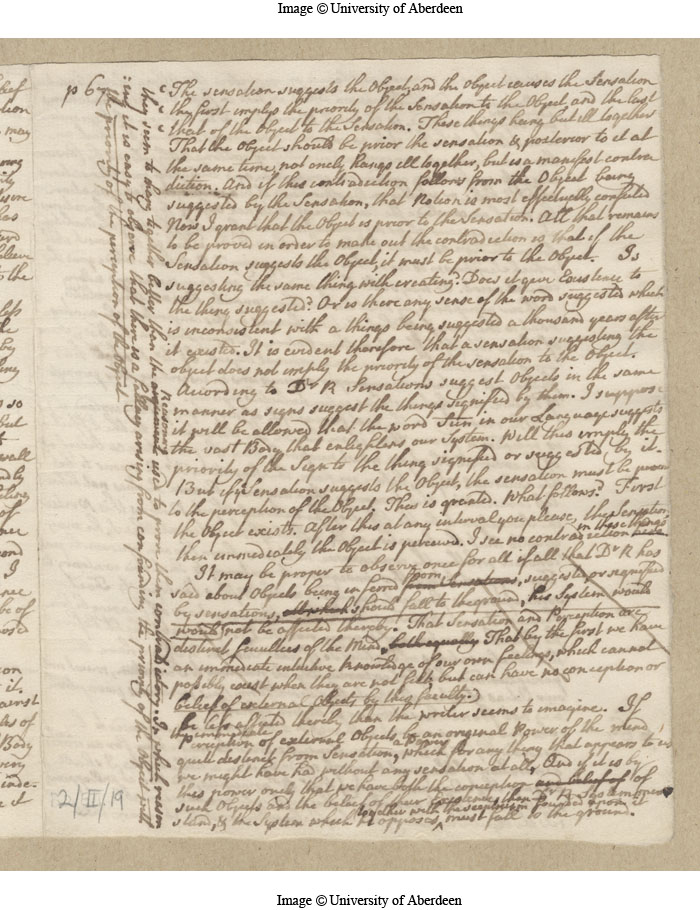 Image © University of Aberdeen
p 67
The sensation suggests the Object, and the Object causes the Sensation
the first implys the priority of the Sensation to the Object, and the last
that of the Object to the Sensation. These things hang but ill together
That the Object should be prior the sensation & posterior to it at
the same time, not onely hangs ill together, but is a manifest contra
diction. And if this contradiction follows from the Object being
suggested by the Sensation, that Notion is most effectually confuted
Now I grant that the Object is prior to the Sensation. All that remains
to be proved in order to make out the contradiction is that if the
Sensation suggests the Object, it must be prior to the Object. Is
suggesting the same thing with creating? Does it give Existence to
the thing suggested? Or is there any sense of the word suggested which
is inconsistent with a things being suggested a thousand years after
it existed. It is evident therefore that a sensation suggesting the
object does not imply the priority of the sensation to the Object.
According to Dr R Sensations suggest Objects in the same
manner as signs suggest the things signifyed by them. I suppose
it will be allowed that the word Sun in our Language suggests
the vast Body that enlightens our System. Will this imply the
priority of the Sign to the thing signifyed or suggested by it.
But if Sensation suggests the Object, the sensation must be prior
to the perception of the Object. This is granted. What follows? First
the Object exists. After this at any interval you please, the Sensation,
then immediately the Object is perceived. I see no contradiction in these things
It may be proper to observe once for all if all that Dr R has
said about Objects being inferred from Sensations, suggested or signifyed
by sensations, should fall to the ground, his System would
not be affected thereby. That Sensation and Perception are
distinct faculties of the Mind, That by the first we have
an immediate intuitive knowledge of our own feelings, which cannot
possibly exist when they are not felt but can have no conception or
belief of external Objects by this faculty.
be less affected thereby than the writer seems to imagine. If
the immediate
Perception of external Objects be an original Power of the mind
quite distinct from Sensation, a Power which for any thing that appears to us
we might have had without any sensation at all, And if it is by
this power onely that we have both the conception and belief of
such Objects and the belief of their Existence, then Dr R
stand, & the System which he opposes, together with the scepticism founded upon it must fall to the ground.
they seem to hang together better than the Reasoning used to prove them contradictory. In which reason
:ing it is easy to observe that there is a Fallacy arising from confounding the priority of the Object with
the priority of the perception of the Object
2/II/19
Image © University of Aberdeen